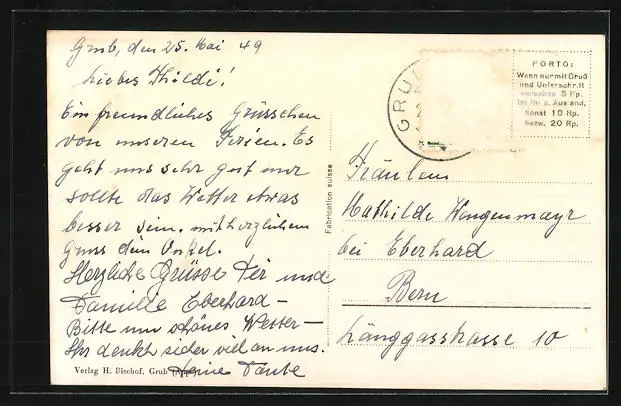 Grub, den 25. Mai 49
Liebes Thildi!
Ein freundliches Grüsschen
von unseren Ferien. Es
geht uns sehr gut nur
sollte das Wetter etwas
besser sein. mit herzlichem
Gruss dein Onkel.
Herzliche Grüsse Dir und
Familie Eberhard –
Bitte um schönes Wetter –
Ihr denkt sicher viel an uns.
Deine Tante
Verlag H. Bischof, Grub (App.)
Fabrication suisse
GRU
PORTO:
Wenn nur mit Gruß
und Unterschrift
versehen 5 Rp.
für In- u. Ausland,
sonst 10 Rp.
bezw. 20 Rp.
Fräulein
Mathilde Wengenmayr
bei Eberhard
Bern
Länggasstrasse 10